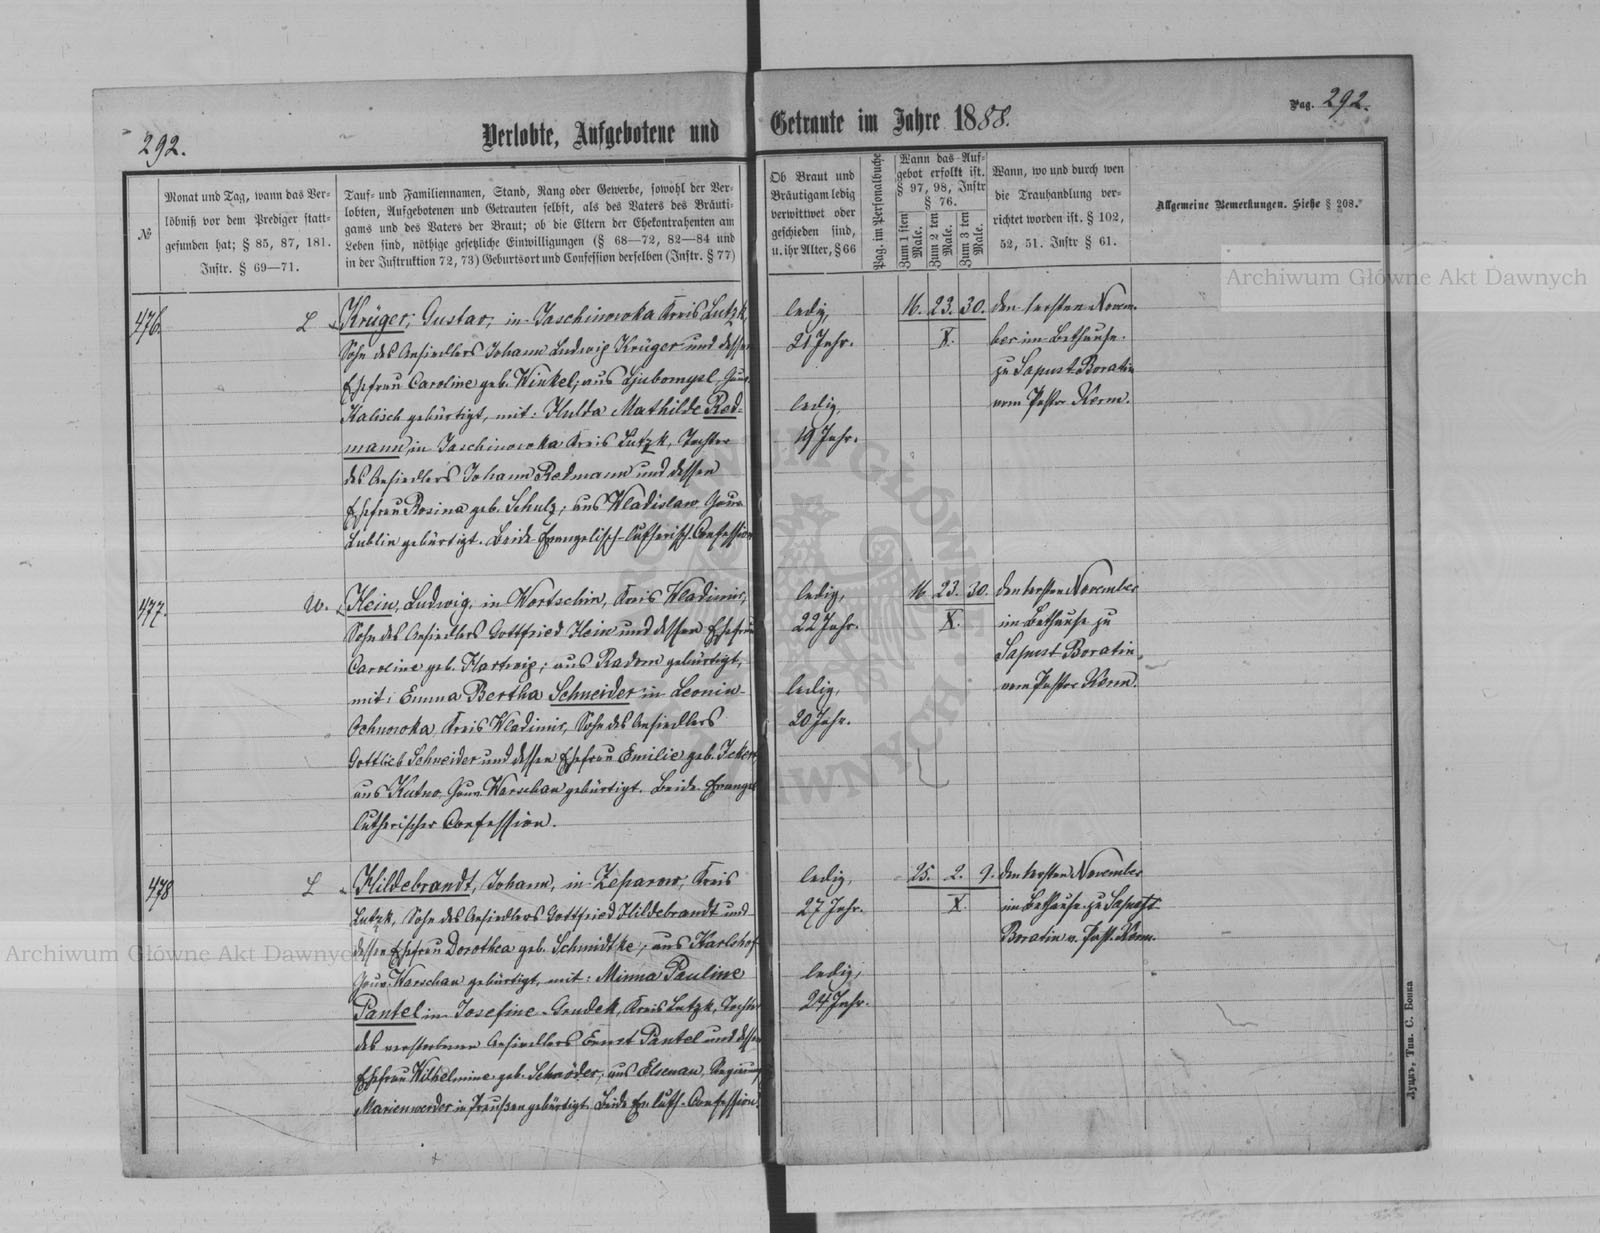 292.
Verlobte, Aufgebotene und
Getraute im Jahre 1888.
Pag. 292.
№
Monat und Tag, wann das Ver-
löbniß vor dem Prediger statt-
gefunden hat; § 85, 87, 181.
Instr. § 69—71.
Tauf- und Familiennamen, Stand, Rang oder Gewerbe, sowohl der Ver-
lobten, Aufgebotenen und Getrauten selbst, als des Vaters des Bräuti-
gams und des Vaters der Braut; ob die Eltern der Ehekontrahenten am
Leben sind, nöthige gesetzliche Einwilligungen (§ 68—72, 82—84 und
in der Instruktion 72, 73) Geburtsort und Confession derselben (Instr. § 77)
Ob Braut und
Bräutigam ledig
verwittwet oder
geschieden sind,
u. ihr Alter, § 66
Pag. im Personalbuche
Wann das Auf-
gebot erfolgt ist.
§ 97, 98, Instr
§ 76.
Zum 1 sten
Male.
Zum 2 ten
Male.
Zum 3 ten
Male.
Wann, wo und durch wen
die Trauhandlung ver-
richtet worden ist. § 102,
52, 51. Instr § 61.
Allgemeine Bemerkungen. Siehe § 208.
476.
L
Krüger, Gustav, in Jaschinowka Kreis Lutzk,
Sohn des Ansiedlers Johann Ludwig Krüger und dessen
Ehefrau Caroline geb. Winkel; aus Ljubomysl, Gouv.
Kalisch gebürtigt, mit: Hulda Mathilde Red-
mann, in Jaschinowka Kreis Lutzk, Tochter
des Ansiedlers Johann Redmann und dessen
Ehefrau Rosina geb. Schulz; aus Wladislaw Gouv.
Lublin gebürtigt. Beide Evangelisch-Lutherisch. Confession
ledig,
21 Jahr.
ledig,
19 Jahr.
16. 23. 30.
X.
den ersten Novem-
ber im Bethause
zu Sapust Boratin
vom Pastor Kerm.
477.
W.
Hein, Ludwig, in Wortschin, Kreis Wladimir,
Sohn des Ansiedlers Gottfried Hein und dessen Ehefrau
Caroline geb. Hartwig; aus Radom gebürtigt,
mit: Emma Bertha Schneider in Leonin-
Ochnowka, Kreis Wladimir, Sohn des Ansiedlers
Gottlieb Schneider und dessen Ehefrau Emilie geb. Jckert
aus Kutno Gouv. Warschau gebürtigt. Beide Evangel.
Lutherischer Confession.
ledig,
22 Jahr.
ledig,
20 Jahr.
16 23. 30.
X.
den ersten November
im Bethause zu
Sapust Boratin
vom Pastor Kerm.
478
L
Hildebrandt, Johann, in Zeparow, Kreis
Lutzk, Sohn des Ansiedlers Gottfried Hildebrandt und
dessen Ehefrau Dorothea geb. Schmidtke; aus Karlshof
Gouv. Warschau gebürtigt, mit: Minna Pauline
Pantel in Josefine-Grudek, Kreis Lutzk, Tochter
des verstorbenen Ansiedlers Ernst Pantel und dessen
Ehefrau Wilhelmine geb. Schröder; aus Elsenau, Regierung
Marienwerder in Preußen gebürtigt. Beide Ev. luth. Confession.
ledig,
27 Jahr.
ledig,
24 Jahr.
25. 2. 9.
X
den ersten November
im Bethause zu Sapust
Boratin v. Past. Kerm.
Луцкъ, Тип. С. Бонка
Archiwum Główne Akt Dawnych
Archiwum Główne Akt Dawnych